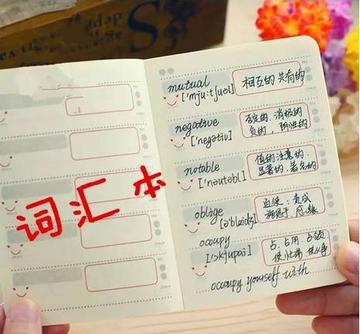 词汇本
mutual
['mju:tʃuəl]
相互的 共有的
negative
['negətiv]
否定的 消极的
负的
notable
['nəutəbl]
值的注意的
显著的 著名的
oblige
[ə'blaidʒ]
occupy
['ɔkjupai]
占.占用.占领
occupy yourself with